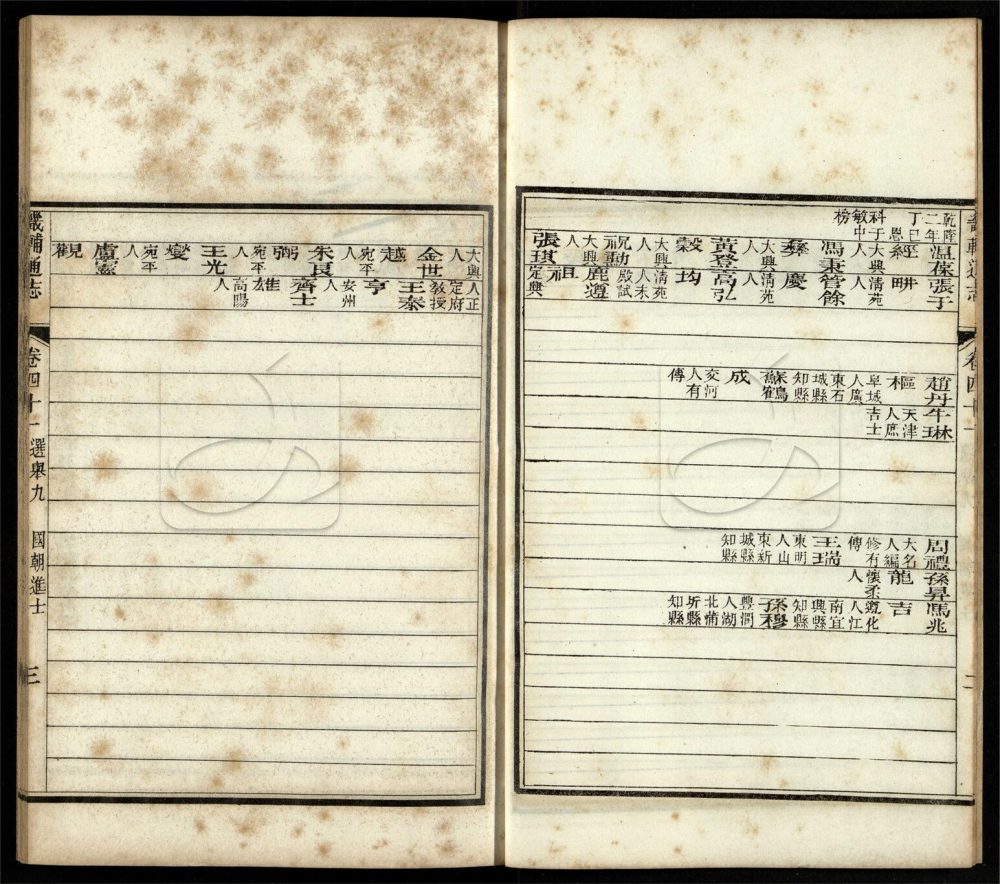 畿輔通志
卷四十一
乾隆二年丁巳恩科于敏中榜
温葆經 大興人
馮秉彝 大興人
黃登穀 大興人
大興人
張琪
張于畊 清苑人
管餘慶 清苑人
高弘均 清苑人未殿試
鹿邁祖 定興
趙丹樞 阜城人廣東石城縣知縣
蘇鶴成 交河人有傳
牛琳 天津人庶吉士
周禮 大名人編修有傳
王瑞 東明人山東新城縣知縣
孫昇龍 懷柔人
馬兆吉 遵化人江南宜興縣知縣
孫穆 豐潤人湖北蒲圻縣知縣
大興人
金世越 宛平人
朱良弼 宛平人
王光燮 宛平人
盧憲觀
人正定府教授
王秦亨 安州人
齊士雄 高陽人
畿輔通志
卷四十一 選舉九 國朝進士 三